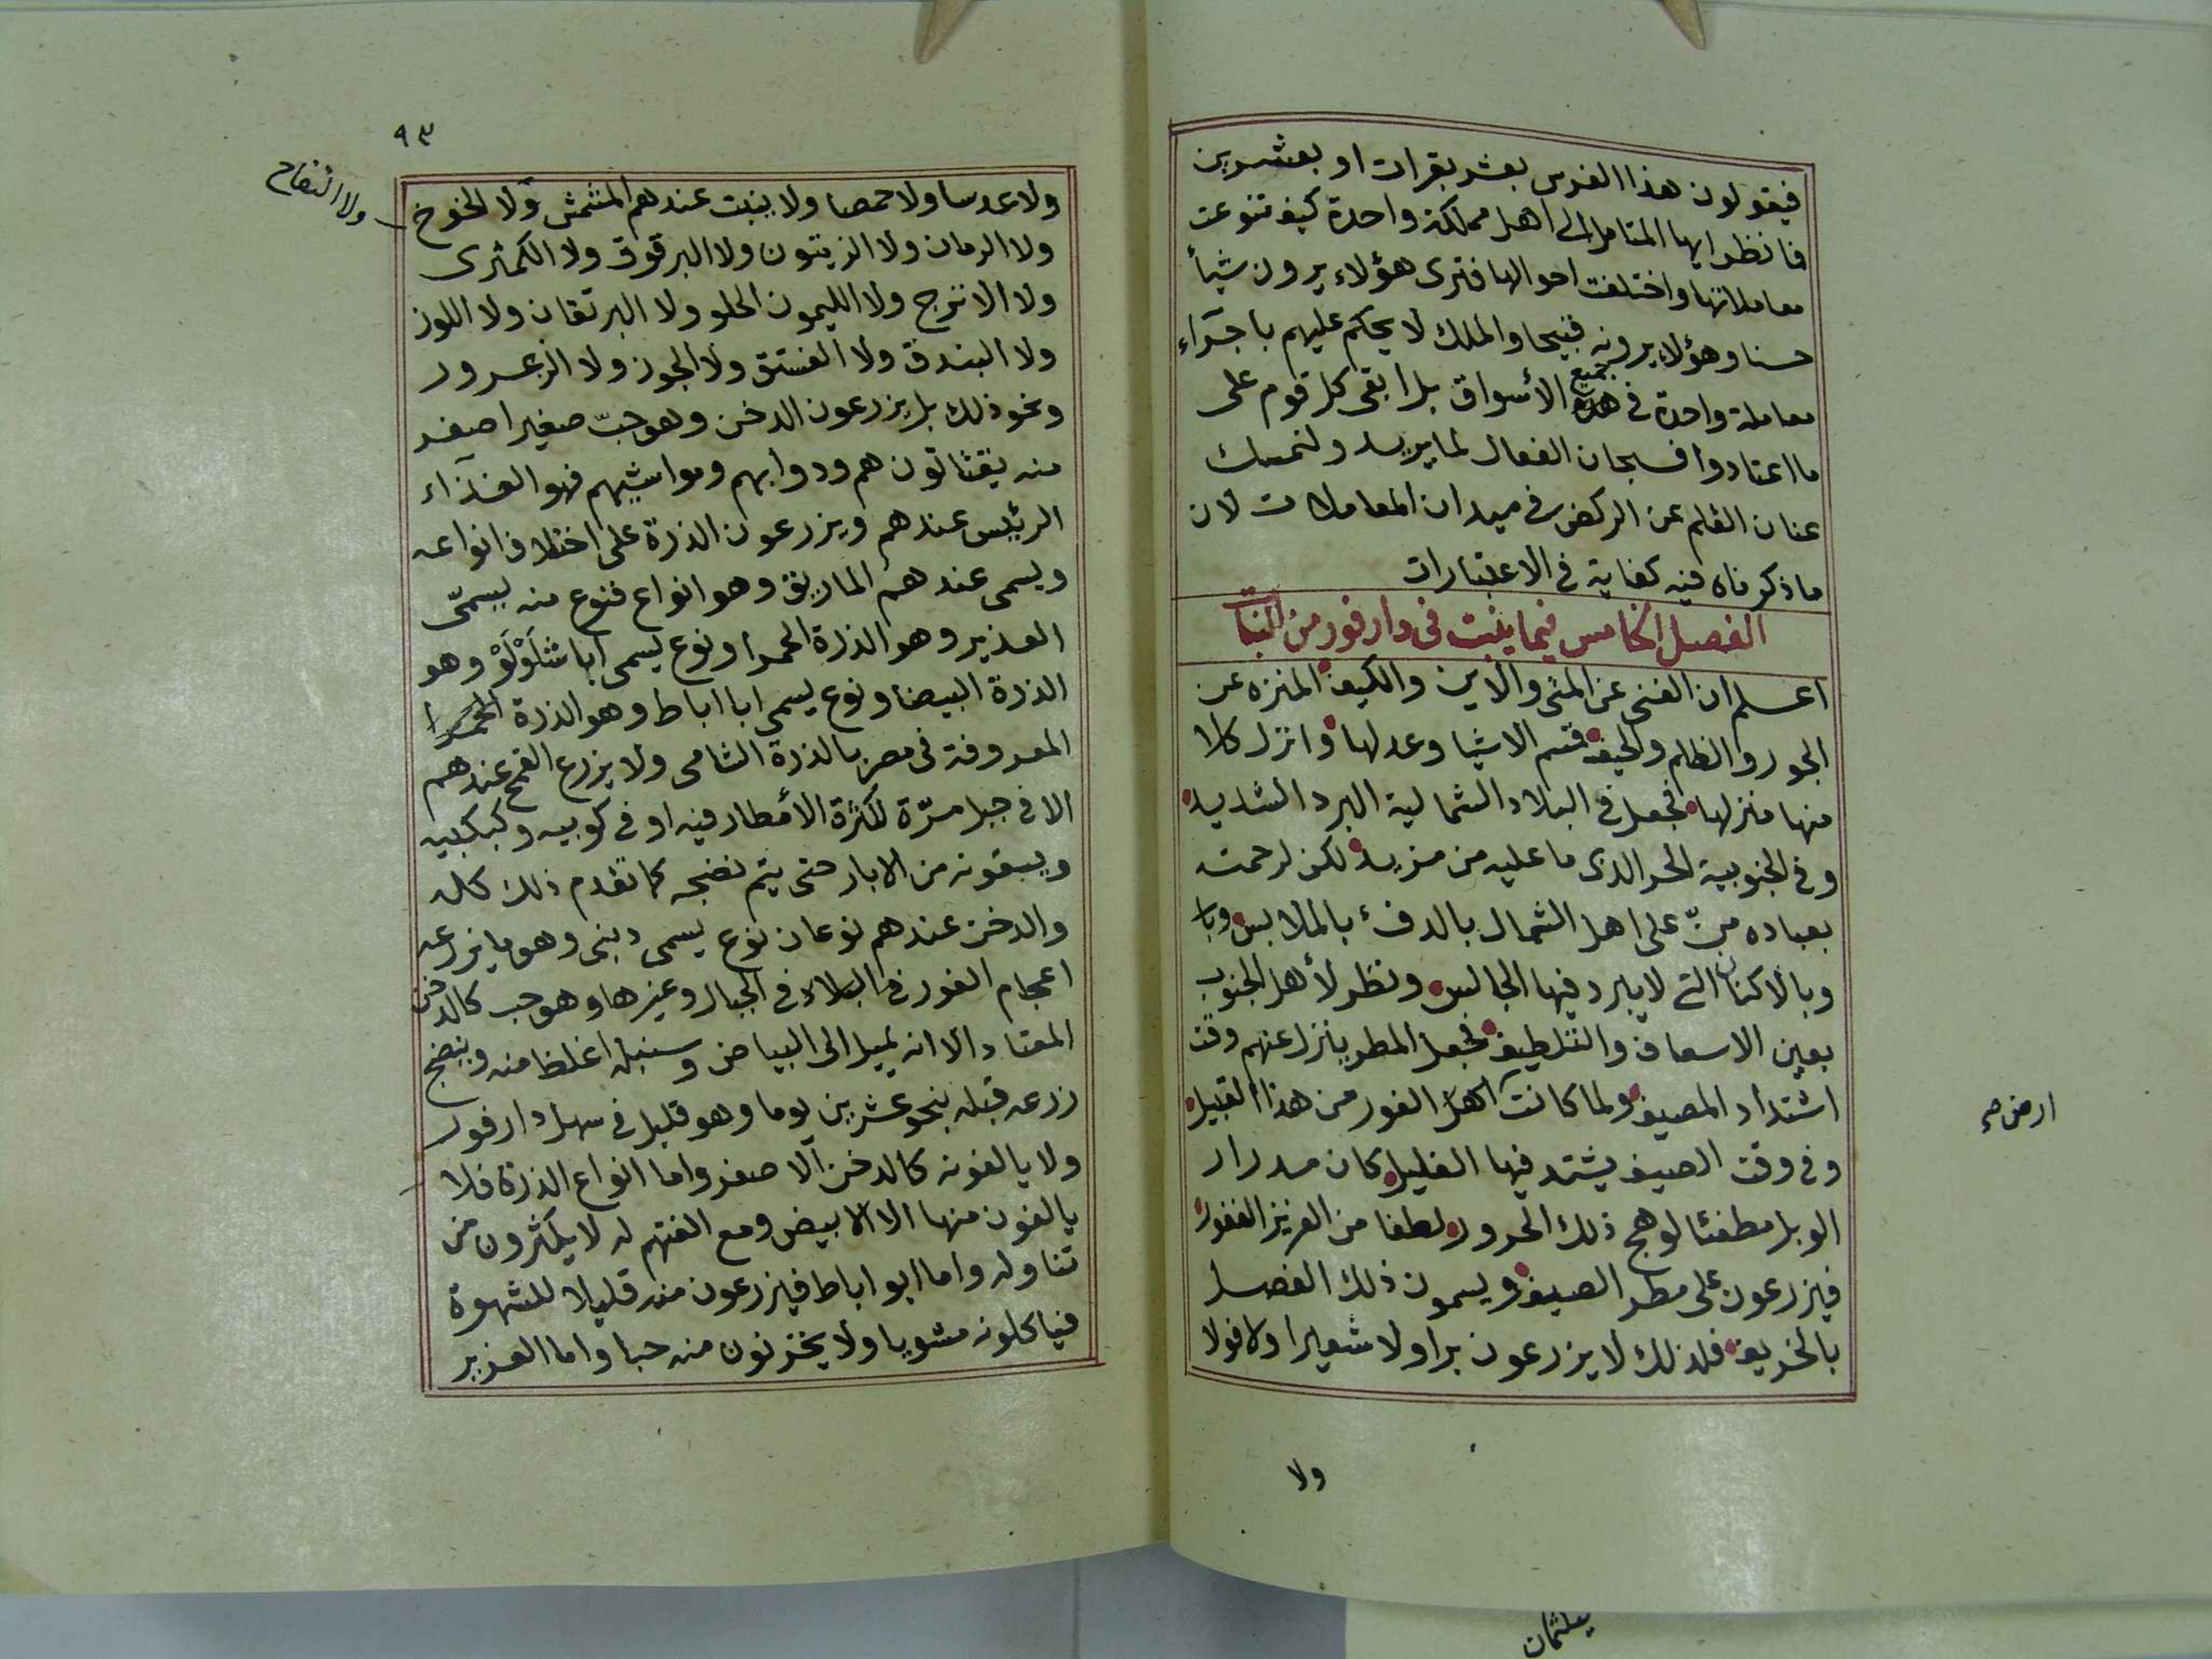 فيقولون هذا الفرس بعشر بقرات او بعشرين
فانظر ايها المتامل الى اهل مملكة واحدة كيف تنوعت
معاملاتها واختلفت احوالها فترى هؤلاء يرون شيأ
حسنا وهؤلاء يرونه قبيحا والملك لا يحكم عليهم باجراء
معاملة واحدة في جميع الأسواق بل ابقى كل قوم على
ما اعتادوا فسبحان الفعال لما يريد ولنمسك
عنان القلم عن الركض في ميدان المعاملات لان
ما ذكرناه فيه كفاية في الاعتبارات
الفصل الخامس فيما ينبت في دارفور من النبات
اعلم ان الغنى عن المتى والاين والكيف المنزه عن
الجور والظلم والحيف قسم الاشيا وعدلها وانزل كلا
منها منزلها فجعل في البلاد الشمالية البرد الشديد
وفي الجنوبية الحر الذى ما عليه من مزيد لكن لرحمته
بعباده منّ على اهل الشمال بالدفء بالملابس وبا
وبالاكنان التي لا يبرد فيها الجالس ونظر لأهل الجنوب
بعين الاسعاف والتلطيف فجعل المطر ينزل عنهم وقت
اشتداد المصيف ولما كانت اهل الفور من هذا القبيل
ارض صح
وفي وقت الصيف يشتد فيها الغليل كان مدرار
الوبل مطفئا لوهج ذلك الحرور لطفا من العزيز الغفور
فيزرعون على مطر الصيف ويسمون ذلك الفصل
بالخريف فلذلك لا يزرعون برا ولا شعيرا ولا فولا
ولا
٩٣
ولا عدسا ولا حمصا ولا ينبت عندهم المشمش ولا الخوخ
ولا التفاح
ولا الرمان ولا الزيتون ولا البرقوق ولا الكمثرى
ولا الاترج ولا الليمون الحلو ولا البرتقان ولا اللوز
ولا البندق ولا الفستق ولا الجوز ولا الزعرور
ونحو ذلك بل يزرعون الدخن وهو حبّ صغير اصفر
منه يقتاتون هم ودوابهم ومواشيهم فهو الغذاء
الرئيس عندهم ويزرعون الذرة على اختلاف انواعه
ويسمى عندهم الماريق وهو انواع فنوع منه يسمّى
العزير وهو الذرة الحمرا ونوع يسمى ابا شَلَوْلَوْ وهو
الذرة البيضا ونوع يسمى ابا اباط وهو الذرة الحمرا
المعروفة في مصر بالذرة الشامى ولا يزرع القمح عندهم
الا في جبل مرّة لكثرة الأمطار فيه او في كوبيه وكبكبيه
ويسقونه من الابار حتى يتم نضجه كما تقدم ذلك كله
والدخن عندهم نوعان نوع يسمى دبنى وهو ما يزرعه
اعجام الفور في البلاد في الجبال وغيرها وهو حب كالدخن
المعتاد الا انه يميل الى البياض وسنبله اغلظ منه وينضج
زرعه قبله بنحو عشرين يوما وهو قليل في سهل دارفور
ولا يالفونه كالدخن الاصفر واما انواع الذرة فلا
يالفون منها الا الابيض ومع الفتهم له لا يكثرون من
تناوله واما ابو اباط فيزرعون منه قليلا للشهوة
فياكلونه مشويا ولا يخزنون منه حبا واما العزير